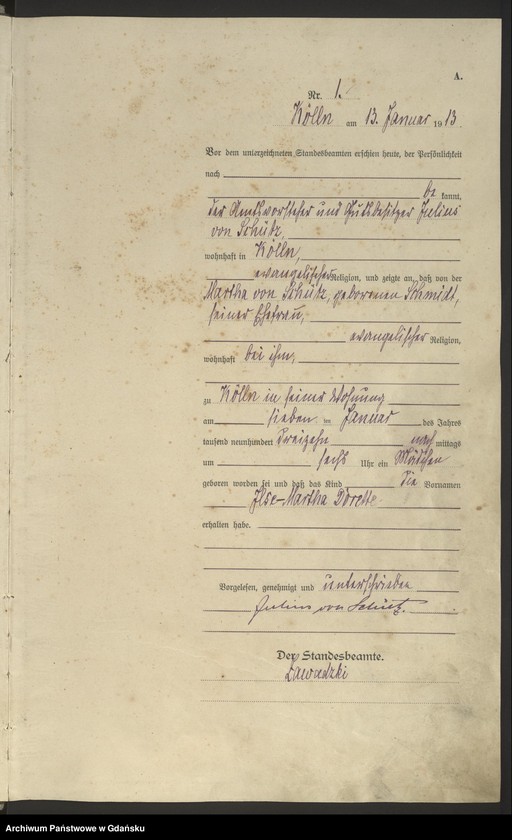 A.
Nr. 1.
Kölln am 13. Januar 1913
Vor dem unterzeichneten Standesbeamten erschien heute, der Persönlichkeit
nach
be kannt,
der Amtsvorsteher und Gutsbesitzer Julius
von Schütz,
wohnhaft in Kölln,
evangelischer Religion, und zeigte an, daß von der
Martha von Schütz, geborenen Schmidt,
seiner Ehefrau,
evangelischer Religion,
wohnhaft bei ihm,
zu Kölln in seiner Wohnung
am sieben ten Januar des Jahres
tausend neunhundert dreizehn nach mittags
um sechs Uhr ein Mädchen
geboren worden sei und daß das Kind die Vornamen
Ilse-Martha Dorette
erhalten habe.
Vorgelesen, genehmigt und unterschrieben
Julius von Schütz.
Der Standesbeamte.
Zawadzki
Archiwum Państwowe w Gdańsku